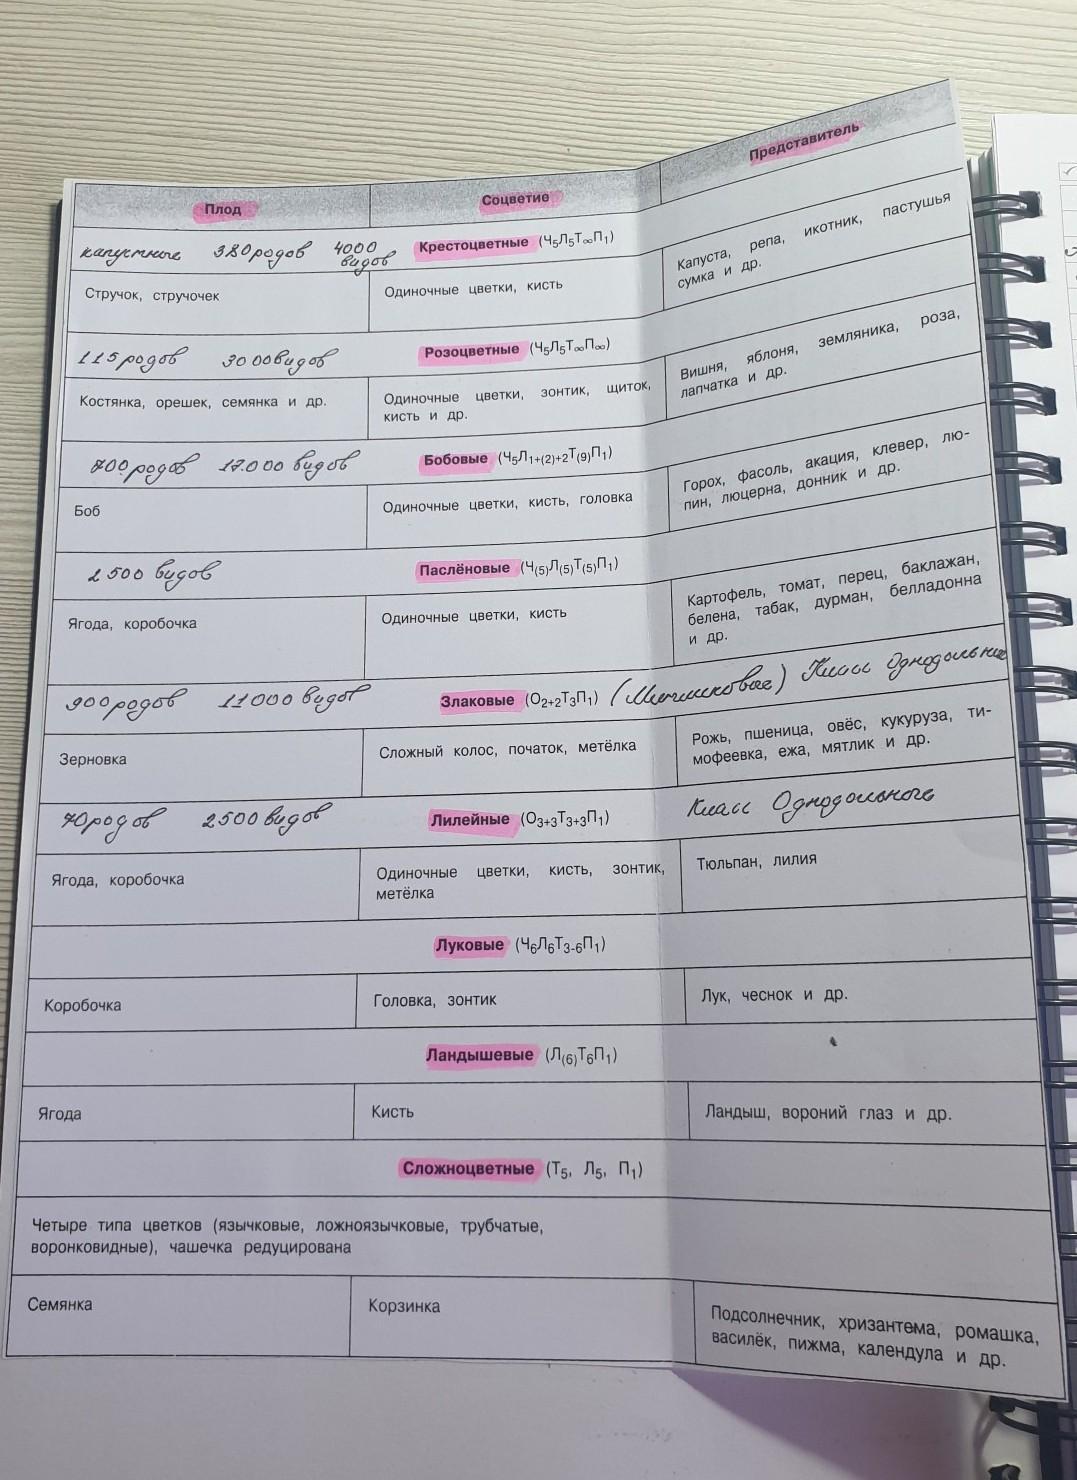 Плод Соцветие Представитель
капустные 380 родов 4000 видов Крестоцветные (Ч5Л5Т∞П1)
Стручок, стручочек
Одиночные цветки, кисть
Капуста, репа, икотник, пастушья
сумка и др.
115 родов 3000 видов Розоцветные (Ч5Л5Т∞П∞)
Костянка, орешек, семянка и др.
Одиночные цветки, зонтик, щиток,
кисть и др.
Вишня, яблоня, земляника, роза,
лапчатка и др.
700 родов 17.000 видов Бобовые (Ч5Л1+(2)+2Т(9)П1)
Боб
Одиночные цветки, кисть, головка
Горох, фасоль, акация, клевер, лю-
пин, люцерна, донник и др.
2500 видов Паслёновые (Ч(5)Л(5)Т(5)П1)
Ягода, коробочка
Одиночные цветки, кисть
Картофель, томат, перец, баклажан,
белена, табак, дурман, белладонна
и др.
900 родов 11000 видов Злаковые (О2+2Т3П1) (Мятликовые) Класс Однодольные
Зерновка
Сложный колос, початок, метёлка
Рожь, пшеница, овёс, кукуруза, ти-
мофеевка, ежа, мятлик и др.
70 родов 2500 видов Лилейные (О3+3Т3+3П1) Класс Однодольные
Ягода, коробочка
Одиночные цветки, кисть, зонтик,
метёлка
Тюльпан, лилия
Луковые (Ч6Л6Т3-6П1)
Коробочка
Головка, зонтик
Лук, чеснок и др.
Ландышевые (Л(6)Т6П1)
Ягода
Кисть
Ландыш, вороний глаз и др.
Сложноцветные (Т5, Л5, П1)
Четыре типа цветков (язычковые, ложноязычковые, трубчатые,
воронковидные), чашечка редуцирована
Семянка
Корзинка
Подсолнечник, хризантема, ромашка,
василёк, пижма, календула и др.